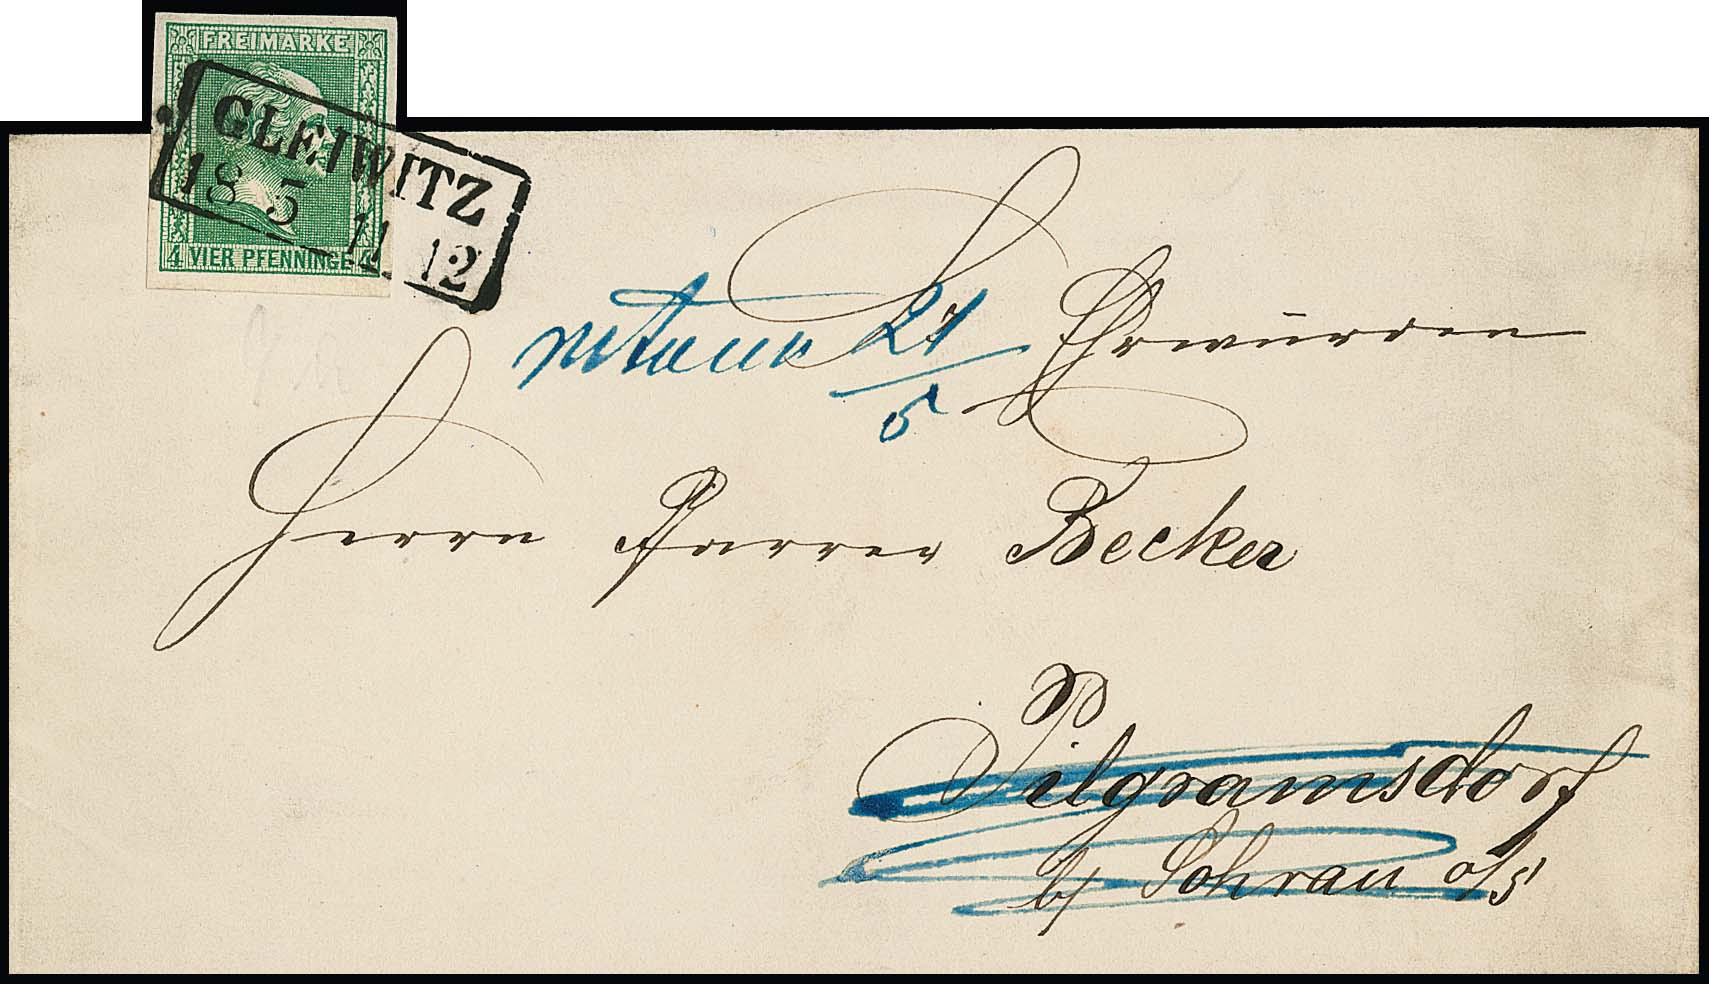 FREIMARKE
GLEIWITZ
18 5 11 12
4 VIER PFENNINGE 4
Sr Ehrwürden
retour 21/5
Herrn Pfarrer Becker
Pilgramsdorf
b/ Sohrau o/s